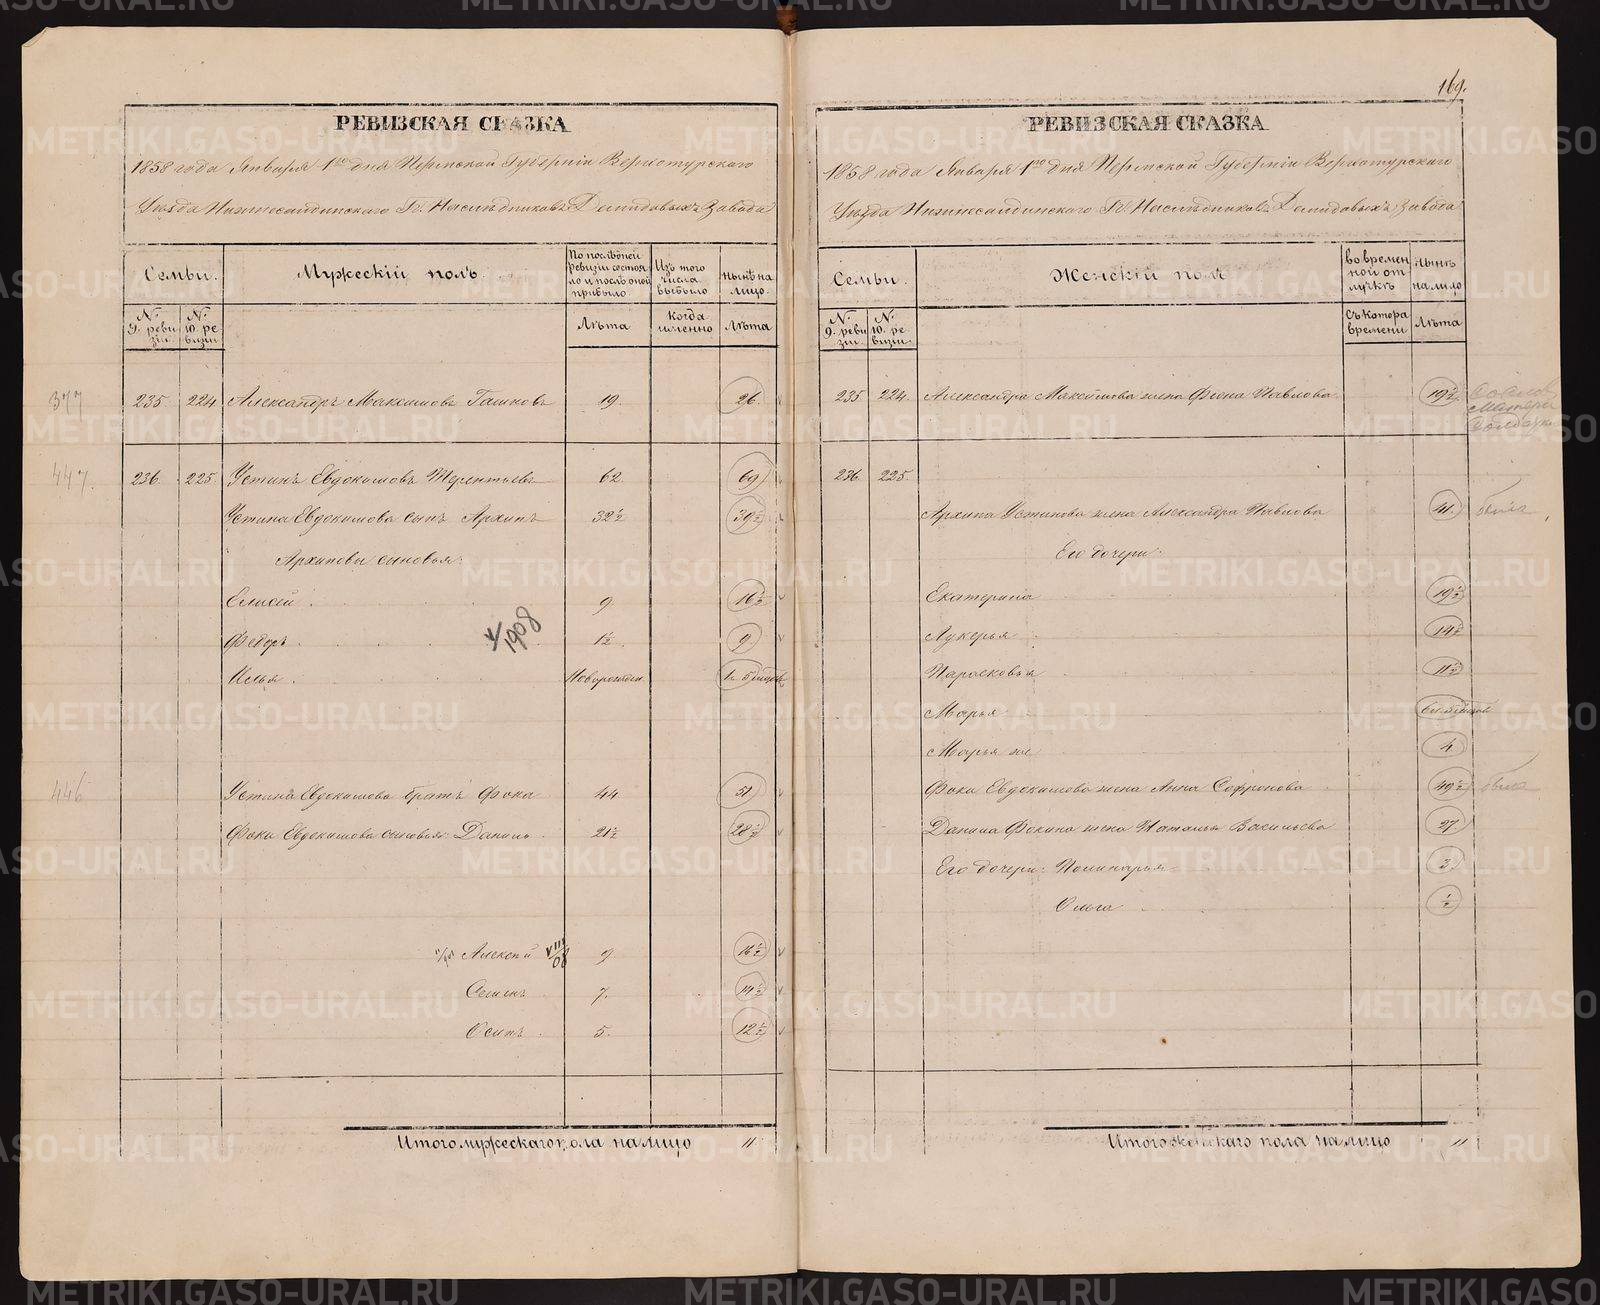 169.
РЕВИЗСКАЯ СКАЗКА
1858 года Января 1го дня Пермской Губерніи Верхотурскаго
Уѣзда Нижнесалдинскаго Гг. Наслѣдниковъ Демидовыхъ Завода
Семьи.
Мужескій полъ.
По послѣдней ревизіи состояло и послѣ оной прибыло.
Изъ того числа выбыло
Нынѣ на лицо.
№ 9. ревизіи.
№ 10. ревизіи
Лѣта
Когда именно
Лѣта
377
235. 224. Александръ Максимовъ Гашковъ 19. 26.
447.
236. 225. Устинъ Евдокимовъ Терентьевъ 62 69
Устина Евдокимова сынъ Архипъ 32½ 39½
Архиповы сыновья:
Елисей 9. 16½
Федоръ 1½ 9
1908
Илья Новорожден
446
Устина Евдокимова братъ Фока 44 51
Фоки Евдокимова сыновья: Данило 21½ 28½
Алексѣй VIII/08 9 16½
Семенъ 7. 14½
Осипъ 5. 12½
Итого мужескаго пола на лицо 11
РЕВИЗСКАЯ СКАЗКА
1858 года Января 1го дня Пермской Губерніи Верхотурскаго
Уѣзда Нижнесалдинскаго Гг. Наслѣдниковъ Демидовыхъ Завода
Семьи.
Женскій полъ
во временной отлучкѣ
Нынѣ на лицо
№ 9. ревизіи.
№ 10. ревизіи.
Съ котора времени
Лѣта
235. 224. Александра Максимова жена Фиона Павлова 19½
236. 225.
Архипа Устинова жена Александра Павлова 41.
Его дочери:
Екатерина 19½
Лукерья 14½
Парасковья 11½
Марья
Марья же 4.
Фоки Евдокимова жена Анна Софронова 49½
Данила Фокина жена Наталья Васильева 27
Его дочери: Полинарья 3.
Ольга ½
Итого женскаго пола на лицо 11
METRIKI.GASO-URAL.RU